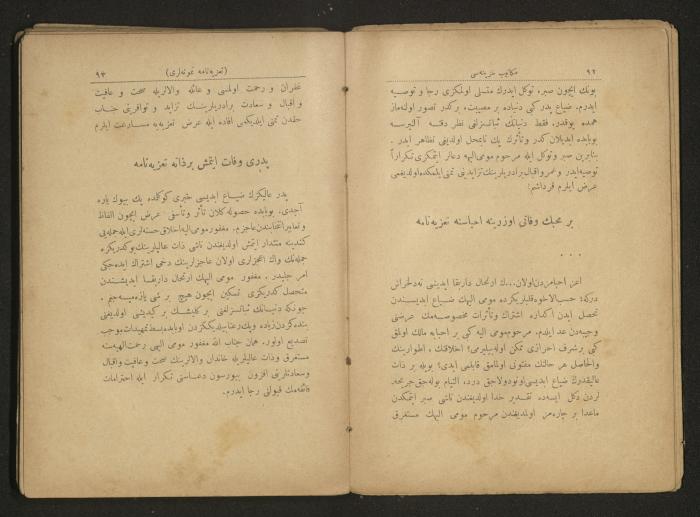 ٩٢
مكاتيب خزينه‌سى
بونك ايچون صبر، توكل ايدرك متسلى اولمكزى رجا و توصيه
ايدرم. ضياع پدر كبى دنياده پر مصيبت، بر كدر تصور اولنه‌ماز
همده يوقدر. فقط دنيانك ثباتسزلغى نظر دقته آلنيرسه
بوبابده ايديلان كدر و تأثرك پك نابمحل اولديغى تظاهر ايدر.
بنابرين صبر و توكل ايله مرحوم مومى اليهه دعالر ايتمكزى تكراراً
توصيه ايدر و عمر و اقبال برادريلرينك تزايدينى تمنى ايلمكده اولديغمى
عرض ايلرم قرداشم!
بر محبك وفاتى اوزرينه احباسنه تعزيه‌نامه
. . .
اعز احبامزدن اولان... ك ارتحال داربقا ايديشى نه دلخراش
دركه: حسب الاخوه قلبلريكزده مومى اليهك ضياع ايديسندن
تحصل ايدن اكداره اشتراك و تأثرات مخصوصه‌مك عرضنى
وجيبه‌دن عد ايلدم. مرحوم مومى اليه كبى بر احبايه مالك اولمق
كبى بر شرف احرازى ممكن اوله‌بيليرمى؟ اخلاقنك، اطوارينك
والحاصل هر حالنك مفتونى اولمامق قابلمى ايدى؟ بويله بر ذات
عاليقدرك ضياع ابديسى اونودولاجق درد، التيام بوله‌جق جريحه‌
لردن دكل ايسه‌ده تقدير خدا اولديغندن ناشى صبر ايتمكدن
ماعدا بر چاره‌مز اولمديغندن مرحوم مومى اليهك مستغرق
٩٣
(تعزيه‌نامه نمونه‌لرى)
غفران و رحمت اولمسى و عائله والالريله صحت و عافيت
و اقبال و سعادت برادريلرينك تزايد و توافرينى جناب
حقدن تمنى ايلديكمى افاده ايله عرض تعزيه‌يه مسارعت ايلرم
پدرى وفات ايتمش بر ذاته تعزيه‌نامه
پدر عاليكزك ضياع ابديسى خبرى كوكلمده پك بيوك ياره
آچدى. بوبابده حصوله كلان تأثر و تأسفى عرض ايچون الفاظ
و تعابير انتخابندن عاجزم. مغفور مومى اليه اخلاق حسنه‌لرى ايله جمله‌يى
كندينه متدار ايتمش اولديغندن ناشى ذات عاليلرينك بو كدريكزه
جمله‌نك و اك اعجزلرى اولان عاجزلرينك دخى اشتراك ايده‌جكى
امر جليدر. مغفور مومى اليهك ارتحال داربقا ايديشندن
متحصل كدريكزى تسكين ايچون هيچ بر شى يازه‌ميه‌جكم.
چونكه دنيانك ثباتسزلغنى بر كليشك بر كيديشى اولديغنى
بنده‌كزدن زياده و پك رعنا بيلديككزدن اوبابده بسط تمهيدات موجب
تصديع اولور. همان جناب الله مغفور مومى اليهى رحمت الهيه‌سنه
مستغرق و ذات عاليلريله خاندان والالرينك صحت و عافيت و اقبال
و سعادتلرينى افزون بيورسون دعاسنى تكرار ايله احترامات
فائقه‌مك قبولنى رجا ايدرم.